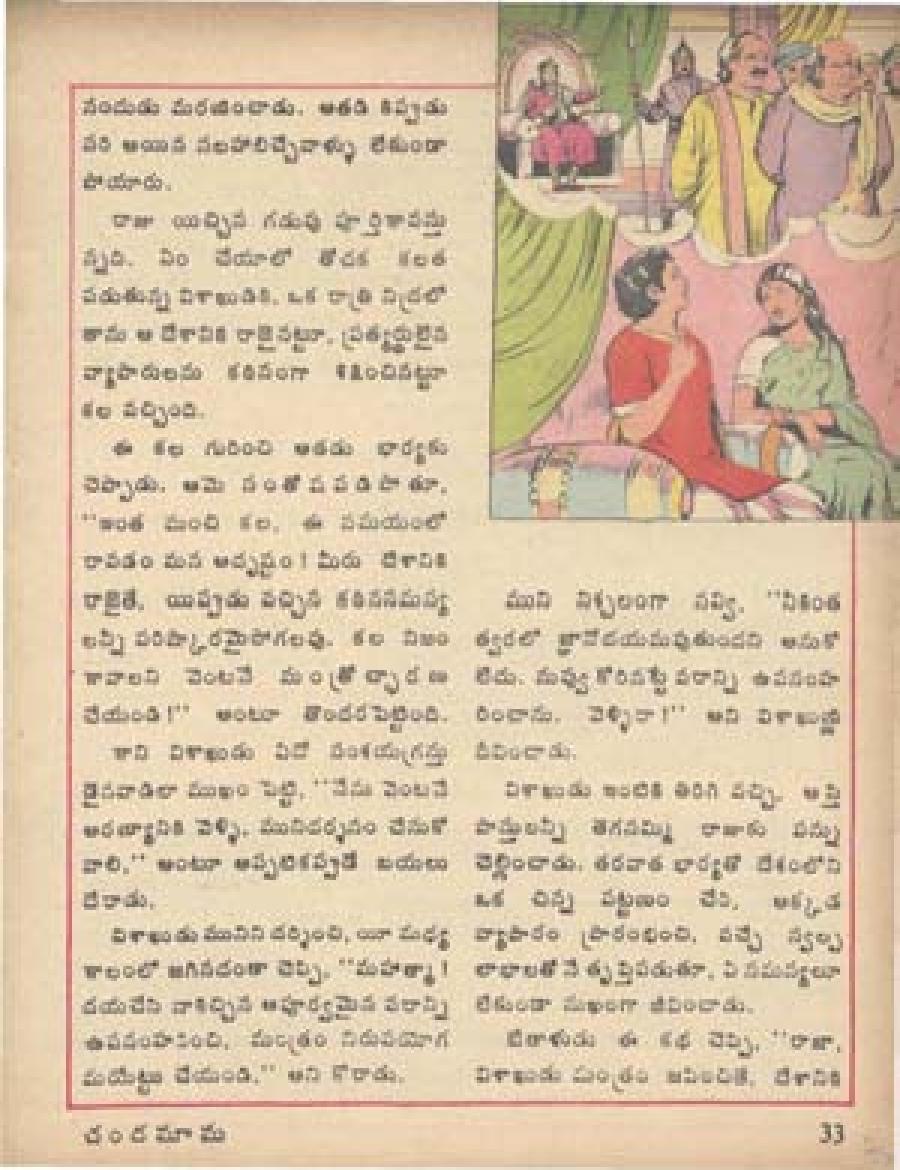 నందుడు మరణించాడు. అతడి కిప్పుడు
సరి అయిన సలహాలిచ్చేవాళ్ళు లేకుండా
పోయారు.
రాజు యిచ్చిన గడువు పూర్తికావస్తు
న్నది. ఏం చేయాలో తోచక కలత
పడుతున్న విశాఖుడికి, ఒక రాత్రి నిద్రలో
తాను ఆ దేశానికి రాజైనట్టూ, ప్రత్యర్థులైన
వ్యాపారులను కఠినంగా శిక్షించినట్టూ
కల వచ్చింది.
ఈ కల గురించి అతడు భార్యకు
చెప్పాడు. ఆమె సంతోషపడిపోతూ,
"ఇంత మంచి కల, ఈ సమయంలో
రావడం మన అదృష్టం! మీరు దేశానికి
రాజైతే, యిప్పుడు వచ్చిన కఠినసమస్య
లన్నీ పరిష్కారమైపోగలవు. కల నిజం
కావాలని వెంటనే మంత్రోచ్చారణ
చేయండి!" అంటూ తొందరపెట్టింది.
కాని విశాఖుడు ఏదో సంశయగ్రస్తు
డైనవాడిలా ముఖం పెట్టి, "నేను వెంటనే
అరణ్యానికి వెళ్ళి, మునిదర్శనం చేసుకో
వాలి," అంటూ అప్పటికప్పుడే బయలు
దేరాడు.
విశాఖుడు మునిని దర్శించి, యీ మధ్య
కాలంలో జరిగినదంతా చెప్పి, "మహాత్మా!
దయచేసి నాకిచ్చిన అపూర్వమైన వరాన్ని
ఉపసంహరించి, మంత్రం నిరుపయోగ
మయేట్టు చేయండి," అని కోరాడు.
ముని నిశ్చలంగా నవ్వి, "నీకింత
త్వరలో జ్ఞానోదయమవుతుందని అనుకో
లేదు. నువ్వు కోరినట్టే వరాన్ని ఉపసంహ
రించాను. వెళ్ళిరా!" అని విశాఖుణ్ణి
దీవించాడు.
విశాఖుడు ఇంటికి తిరిగి వచ్చి, ఆస్తి
పాస్తులన్నీ తెగనమ్మి రాజుకు పన్ను
చెల్లించాడు. తరవాత భార్యతో దేశంలోని
ఒక చిన్న పట్టణం చేరి, అక్కడ
వ్యాపారం ప్రారంభించి, వచ్చే స్వల్ప
లాభాలతోనే తృప్తిపడుతూ, ఏ సమస్యలూ
లేకుండా సుఖంగా జీవించాడు.
బేతాళుడు ఈ కథ చెప్పి, "రాజా,
విశాఖుడు మంత్రం జపించితే, దేశానికి
చందమామ
33